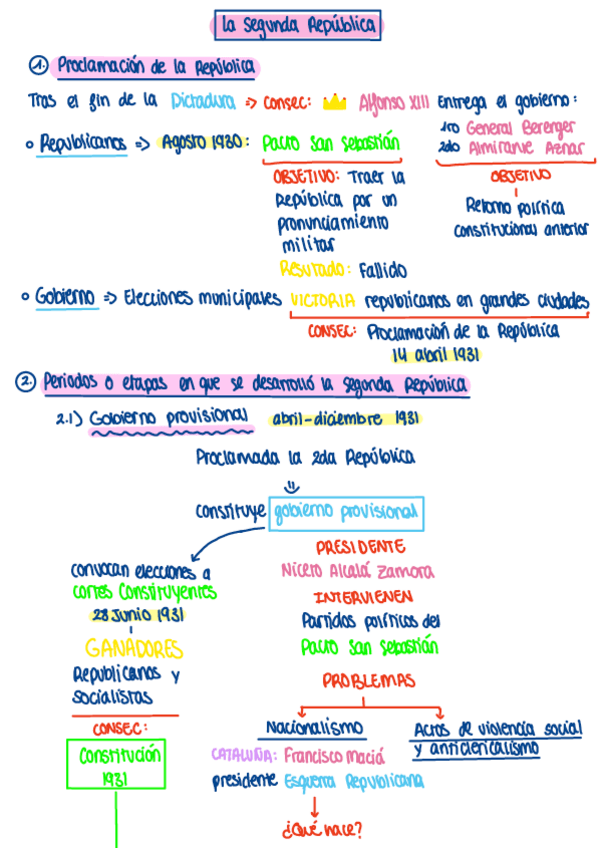 La Segunda República
1. Proclamación de la República
Tras el fin de la Dictadura => consec: Alfonso XIII Entrega el gobierno:
1ro General Berenger
2do Almirante Aznar
OBJETIVO
Retorno política
constitucional anterior
o Republicanos => Agosto 1930: Pacto San Sebastián
OBJETIVO: Traer la
República por un
pronunciamiento
militar
Resultado: Fallido
o Gobierno => Elecciones municipales VICTORIA republicanos en grandes ciudades
CONSEC: Proclamación de la República
14 abril 1931
2. Periodos o etapas en que se desarrolló la Segunda República
2.1) Gobierno provisional abril-diciembre 1931
Proclamada la 2da República
constituye gobierno provisional
convocan elecciones a
cortes Constituyentes
28 Junio 1931
GANADORES
Republicanos y
socialistas
CONSEC:
Constitución
1931
PRESIDENTE
Niceto Alcalá Zamora
INTERVIENEN
Partidos políticos del
Pacto San Sebastián
PROBLEMAS
Nacionalismo
CATALUÑA: Francisco Maciá
presidente Esquerra Republicana
¿Qué hace?
Actos de violencia social
y anticlericalismo